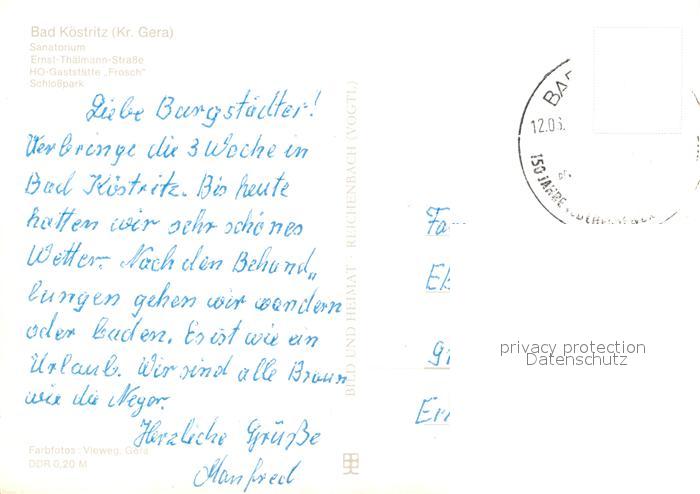 Bad Köstritz (Kr. Gera)
Sanatorium
Ernst-Thälmann-Straße
HO-Gaststätte „Frosch"
Schloßpark
Liebe Burgstädter!
Verbringe die 3 Woche in
Bad Köstritz. Bis heute
hatten wir sehr schönes
Wetter. Nach den Behand„
lungen gehen wir wandern
oder baden. Es ist wie ein
Urlaub. Wir sind alle Braun
wie die Neger.
Herzliche Grüße
Manfred
Farbfotos: Vieweg, Gera
DDR 0,20 M
BILD UND HEIMAT · REICHENBACH (VOGTL)
BAD
12.06.
150 JAHRE
Fa
privacy protection
Datenschutz